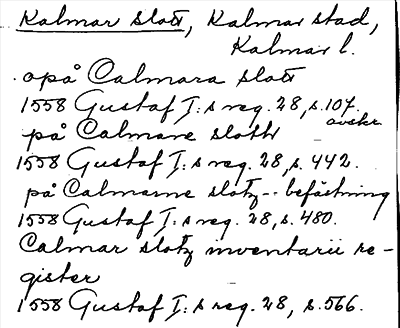 Kalmar slott, Kalmar stad,
Kalmar l.
opå Calmara slott
1558 Gustaf I:s reg. 28, s. 107.
avskr.
på Calmane slothz
1558 Gustaf I:s reg. 28, s. 442.
på Calmarne slotz - - befästning
1558 Gustaf I:s reg. 28, s. 480.
Calmar slotz inventarii re-
gister
1558 Gustaf I:s reg. 28, s. 566.